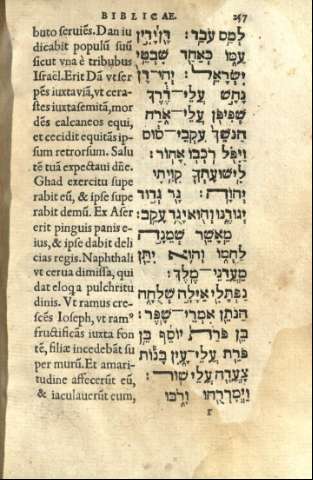 BIBLICAE. 257
buto seruiẽs. Dan iu
dicabit populũ suũ
sicut vna è tribubus
Israël. Erit Dã vt ser
pẽs iuxta viã, vt cera
stes iuxta semitã, mor
dẽs calcaneos equi,
et cecidit equitãs ip-
sum retrorsum. Salu
tẽ tuã expectaui dñe.
Ghad exercitu supe
rabit eũ, & ipse supe
rabit demũ. Ex Aser
erit pinguis panis e-
ius, & ipse dabit deli
cias regis. Naphthali
vt cerua dimissa, qui
dat eloqa pulchritu
dinis. Vt ramus cre-
scẽs Ioseph, vt ram⁹
fructificãs iuxta fon
tẽ, filiæ incedebãt su
per murũ. Et amari-
tudine affecerũt eũ,
& iaculauerũt eum,
לְמַס עֹבֵד׃ דָּן יָדִין
עַמּוֹ כְּאַחַד שִׁבְטֵי
יִשְׂרָאֵל׃ יְהִי־דָן
נָחָשׁ עֲלֵי־דֶרֶךְ
שְׁפִיפֹן עֲלֵי־אֹרַח
הַנֹּשֵׁךְ עִקְּבֵי־סוּס
וַיִּפֹּל רֹכְבוֹ אָחוֹר׃
לִישׁוּעָתְךָ קִוִּיתִי
יְהוָה׃ גָּד גְּדוּד
יְגוּדֶנּוּ וְהוּא יָגֻד עָקֵב׃
מֵאָשֵׁר שְׁמֵנָה
לַחְמוֹ וְהוּא יִתֵּן
מַעֲדַנֵּי־מֶלֶךְ׃
נַפְתָּלִי אַיָּלָה שְׁלֻחָה
הַנֹּתֵן אִמְרֵי־שָׁפֶר׃
בֵּן פֹּרָת יוֹסֵף בֵּן
פֹּרָת עֲלֵי־עָיִן בָּנוֹת
צָעֲדָה עֲלֵי־שׁוּר׃
וַיְמָרֲרֻהוּ וָרֹבּוּ
r